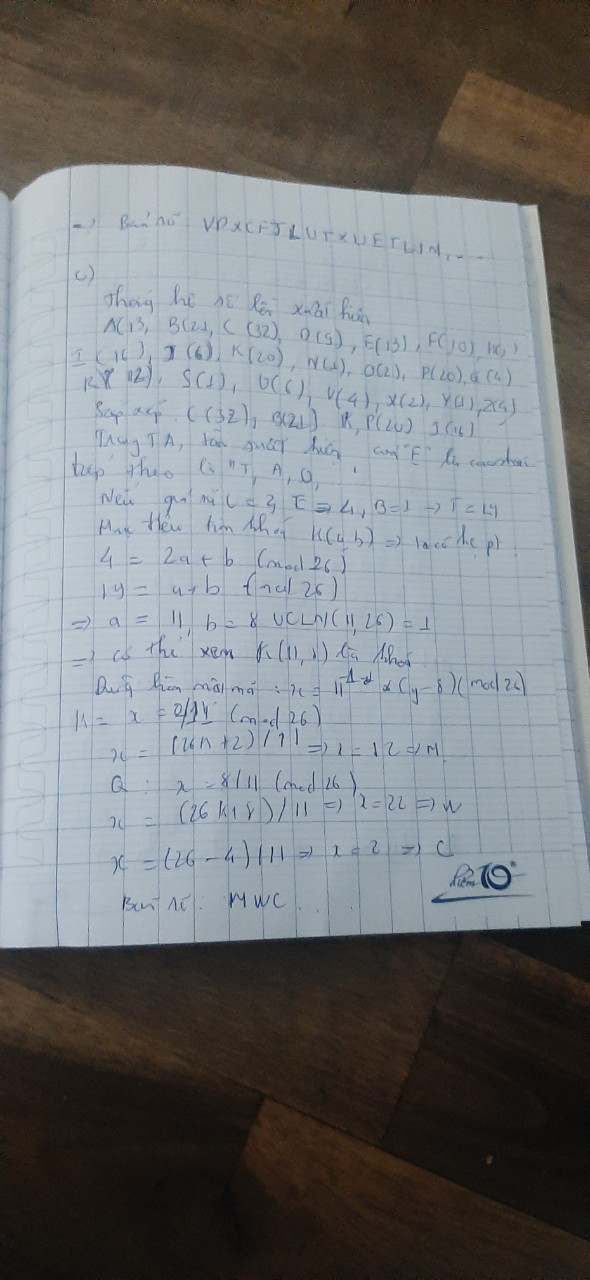 => Bản rõ: VPXCFJLUTXUETLIN, ...
c)
Thống kê số lần xuất hiện
A(13, B(21), C(32), D(9), E(13), F(10),
I(16), J(6), K(20), N(1), O(2), P(20), Q(4)
R(12), S(1), U(6), V(4), X(2), Y(1), Z(4)
Sắp xếp C(32), B(21) K, P(20) I(16)
Trong TA, tần xuất hiện "E" là
tiếp theo là "T, A, O,
Nếu C = 2, E = 4, B=1 -> T = 19
Mục tiêu tìm khoá K(a,b) => ta có hệ pt
4 = 2a + b (mod 26)
19 = a + b (mod 26)
=> a = 11, b = 8 UCLN(11, 26) = 1
=> có thể xem K(11, 8) là khoá
mã: x = 11 (y - 8)(mod 26)
K = x = 2/11 (mod 26)
x = (26K+2)/11 => x = 12 => M
Q: x = 8/11 (mod 26)
x = (26K+8)/11 => x = 22 => W
x = (26 - 4)/11 => x = 2 => C
Bản rõ: MWC...
điểm 10